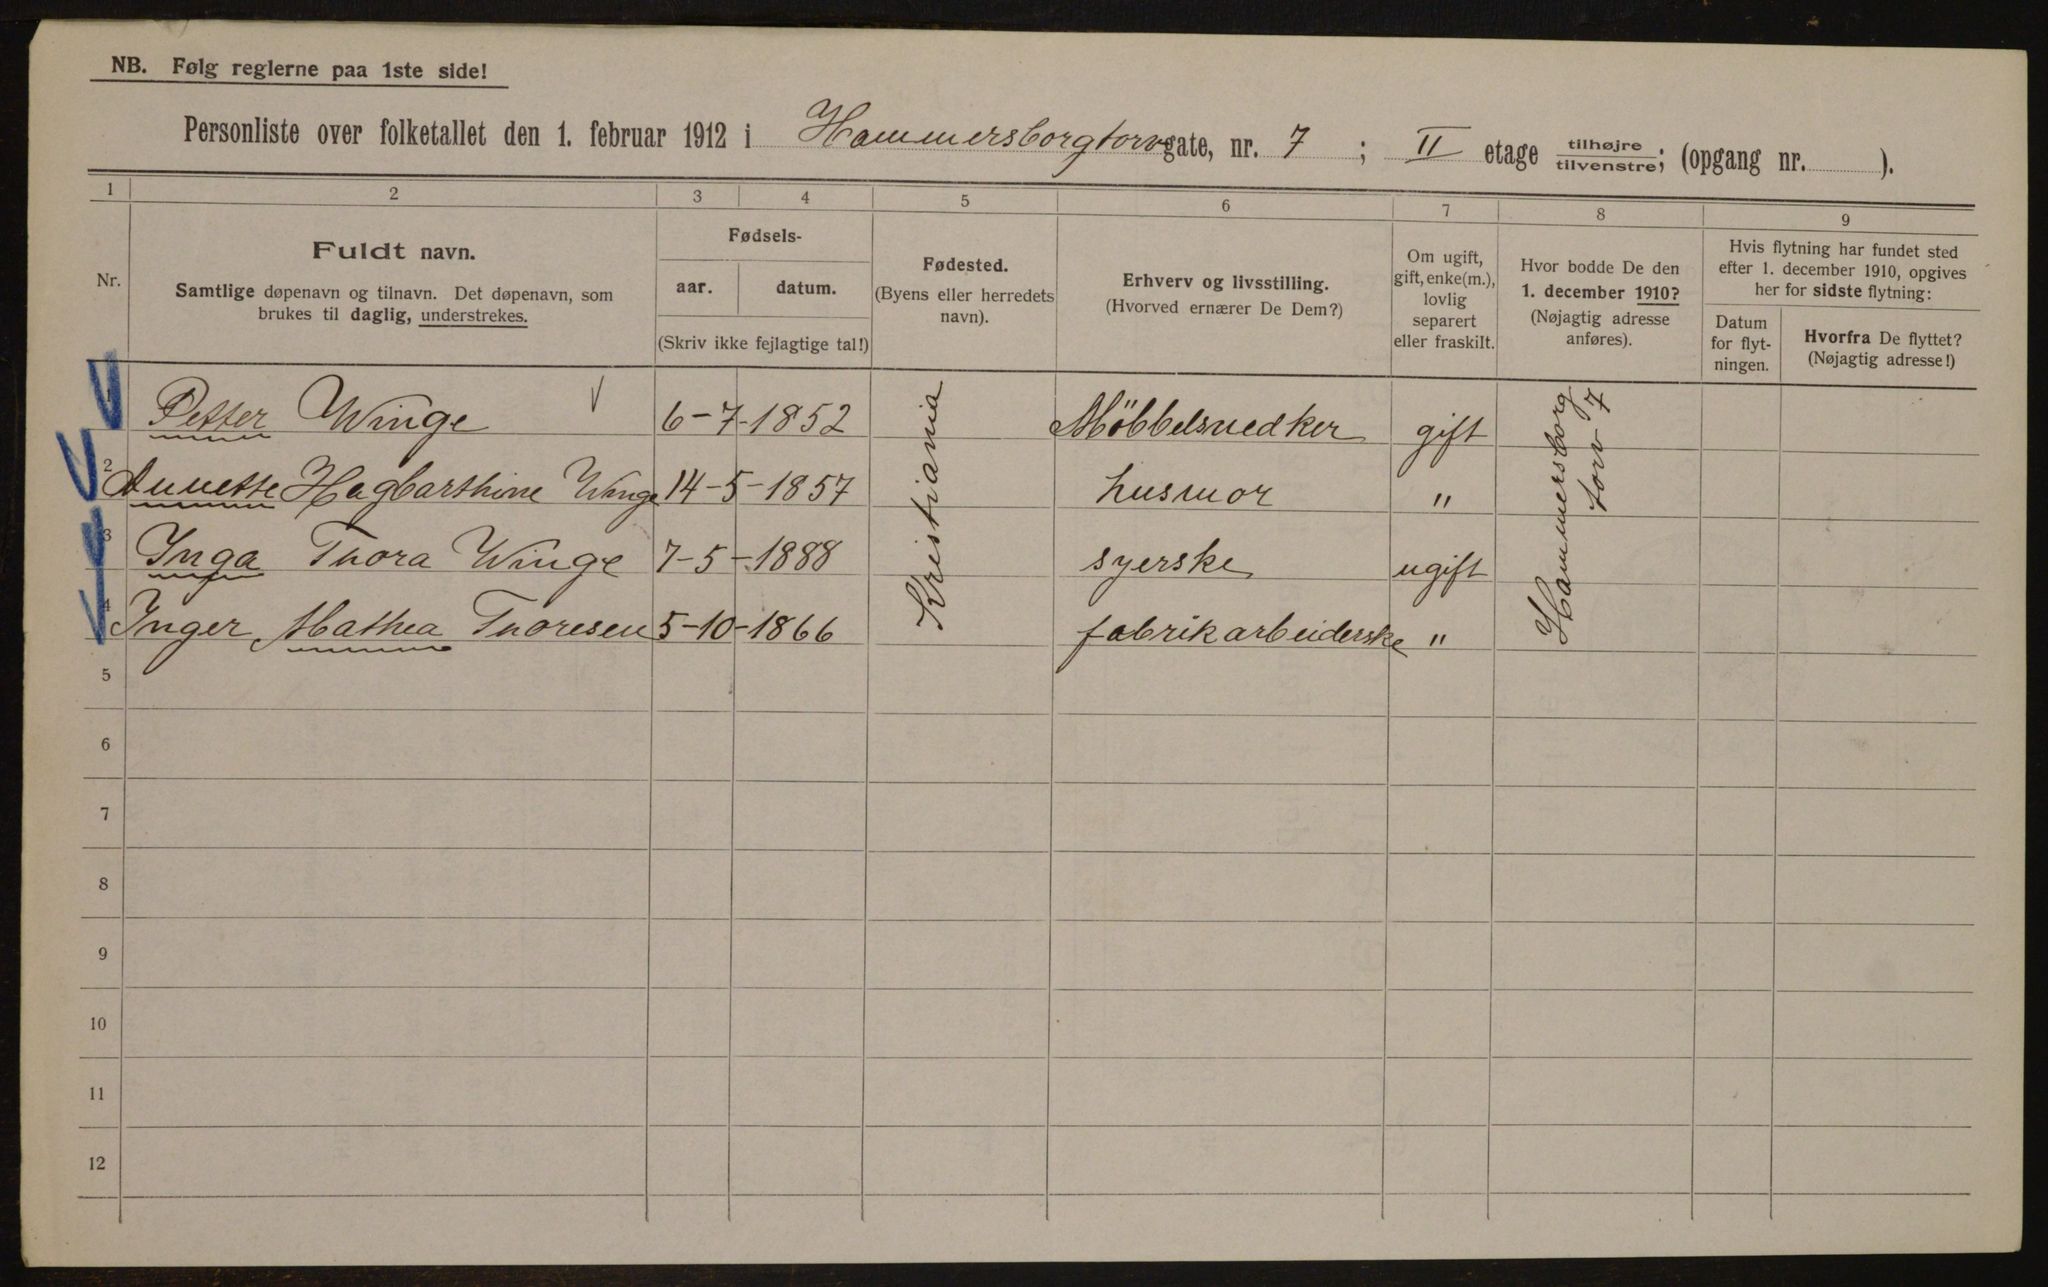 NB. Følg reglerne paa 1ste side!
Personliste over folketallet den 1. februar 1912 i Hammersborgtorv gate, nr. 7 ; II etage tilhøjre / tilvenstre; (opgang nr. ).
1 2 3 4 5 6 7 8 9
Nr.
Fuldt navn.
Samtlige døpenavn og tilnavn. Det døpenavn, som
brukes til daglig, understrekes.
Fødsels-
aar. datum.
(Skriv ikke fejlagtige tal!)
Fødested.
(Byens eller herredets
navn).
Erhverv og livsstilling.
(Hvorved ernærer De Dem?)
Om ugift,
gift, enke(m.),
lovlig
separert
eller fraskilt.
Hvor bodde De den
1. december 1910?
(Nøjagtig adresse
anføres).
Hvis flytning har fundet sted
efter 1. december 1910, opgives
her for sidste flytning:
Datum
for flyt-
ningen.
Hvorfra De flyttet?
(Nøjagtig adresse!)
1 Petter Winge 6-7-1852 Møbbelsnedker gift
2 Annette Hagbarthine Winge 14-5-1857 husmor "
3 Inga Thora Winge 7-5-1888 syerske ugift
4 Inger Mathea Thoresen 5-10-1866 fabrikarbeiderske "
Kristiania
Hammersborg
torv 7
5
6
7
8
9
10
11
12